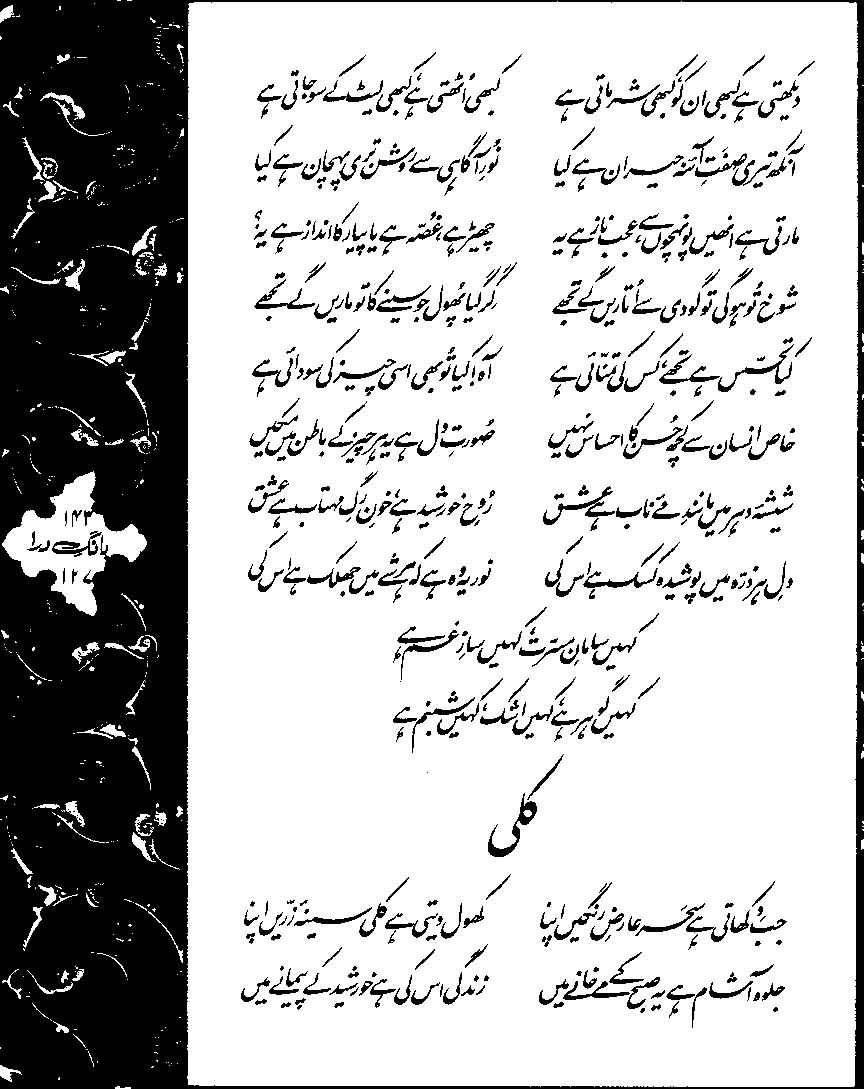 دیکھتی ہے کبھی ان کو، کبھی شرماتی ہے
کبھی اُٹھتی ہے، کبھی لیٹ کے سو جاتی ہے
آنکھ تیری صفَتِ آئنہ حیران ہے کیا
نُورِ آگاہی سے روشن تری پہچان ہے کیا
مارتی ہے انھیں پونہچوں سے، عجب ناز ہے یہ
چھیڑ ہے، غُصّہ ہے یا پیار کا انداز ہے یہ؟
شوخ تُو ہوگی تو گودی سے اُتاریں گے تجھے
گر گیا پھُول جو سینے کا تو ماریں گے تجھے
کیا تجسّس ہے تجھے، کس کی تمنّائی ہے
آہ! کیا تُو بھی اسی چیز کی سودائی ہے
خاص انسان سے کچھ حُسن کا احساس نہیں
صُورتِ دل ہے یہ ہر چیز کے باطن میں مکیں
شیشۂ دہر میں مانندِ مے ناب ہے عشق
رُوحِ خورشید ہے، خونِ رگِ مہتاب ہے عشق
دلِ ہر ذرّہ میں پوشیدہ کسک ہے اس کی
نور یہ وہ ہے کہ ہر شے میں جھلک ہے اس کی
کہیں سامانِ مسرّت، کہیں سازِ غم ہے
کہیں گوہر ہے، کہیں اشک، کہیں شبنم ہے
کلی
جب دِکھاتی ہے سحَر عارضِ رنگیں اپنا
کھول دیتی ہے کلی سینۂ زرّیں اپنا
جلوہ آشام ہے یہ صبح کے مے خانے میں
زندگی اس کی ہے خورشید کے پیمانے میں
۱۴۳
بانگِ درا
۱۲۷